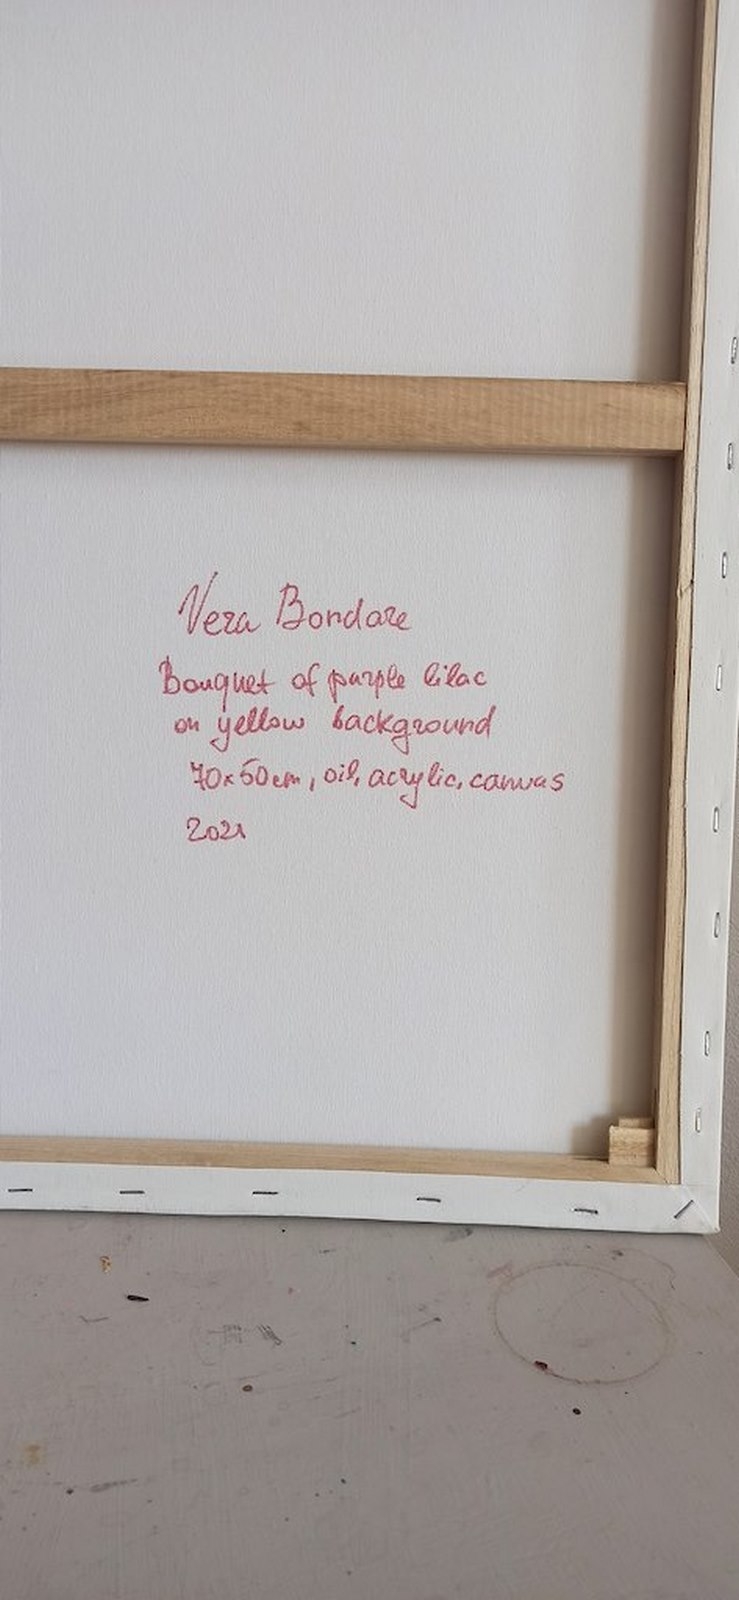 Vera Bondare
Bouquet of purple lilac
on yellow background
70x50cm, oil, acrylic, canvas
2021